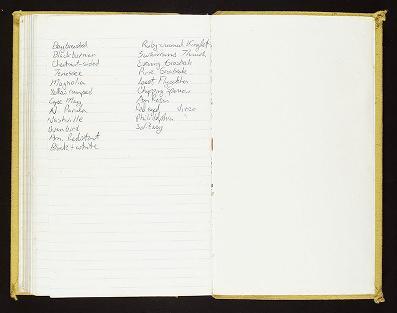 Bay breasted
Blackburnian
Chestnut-sided
Tennessee
Magnolia
Yellow rumped
Cape May
N. Parula
Nashville
Ovenbird
Am. Redstart
Black + white
Ruby-crowned Kinglet
Swainsons Thrush
Evening Grosbeak
Pine Grosbeak
Least Flycatcher
Chipping Sparrow
Red eyed Vireo
Philadelphia "
Solitary